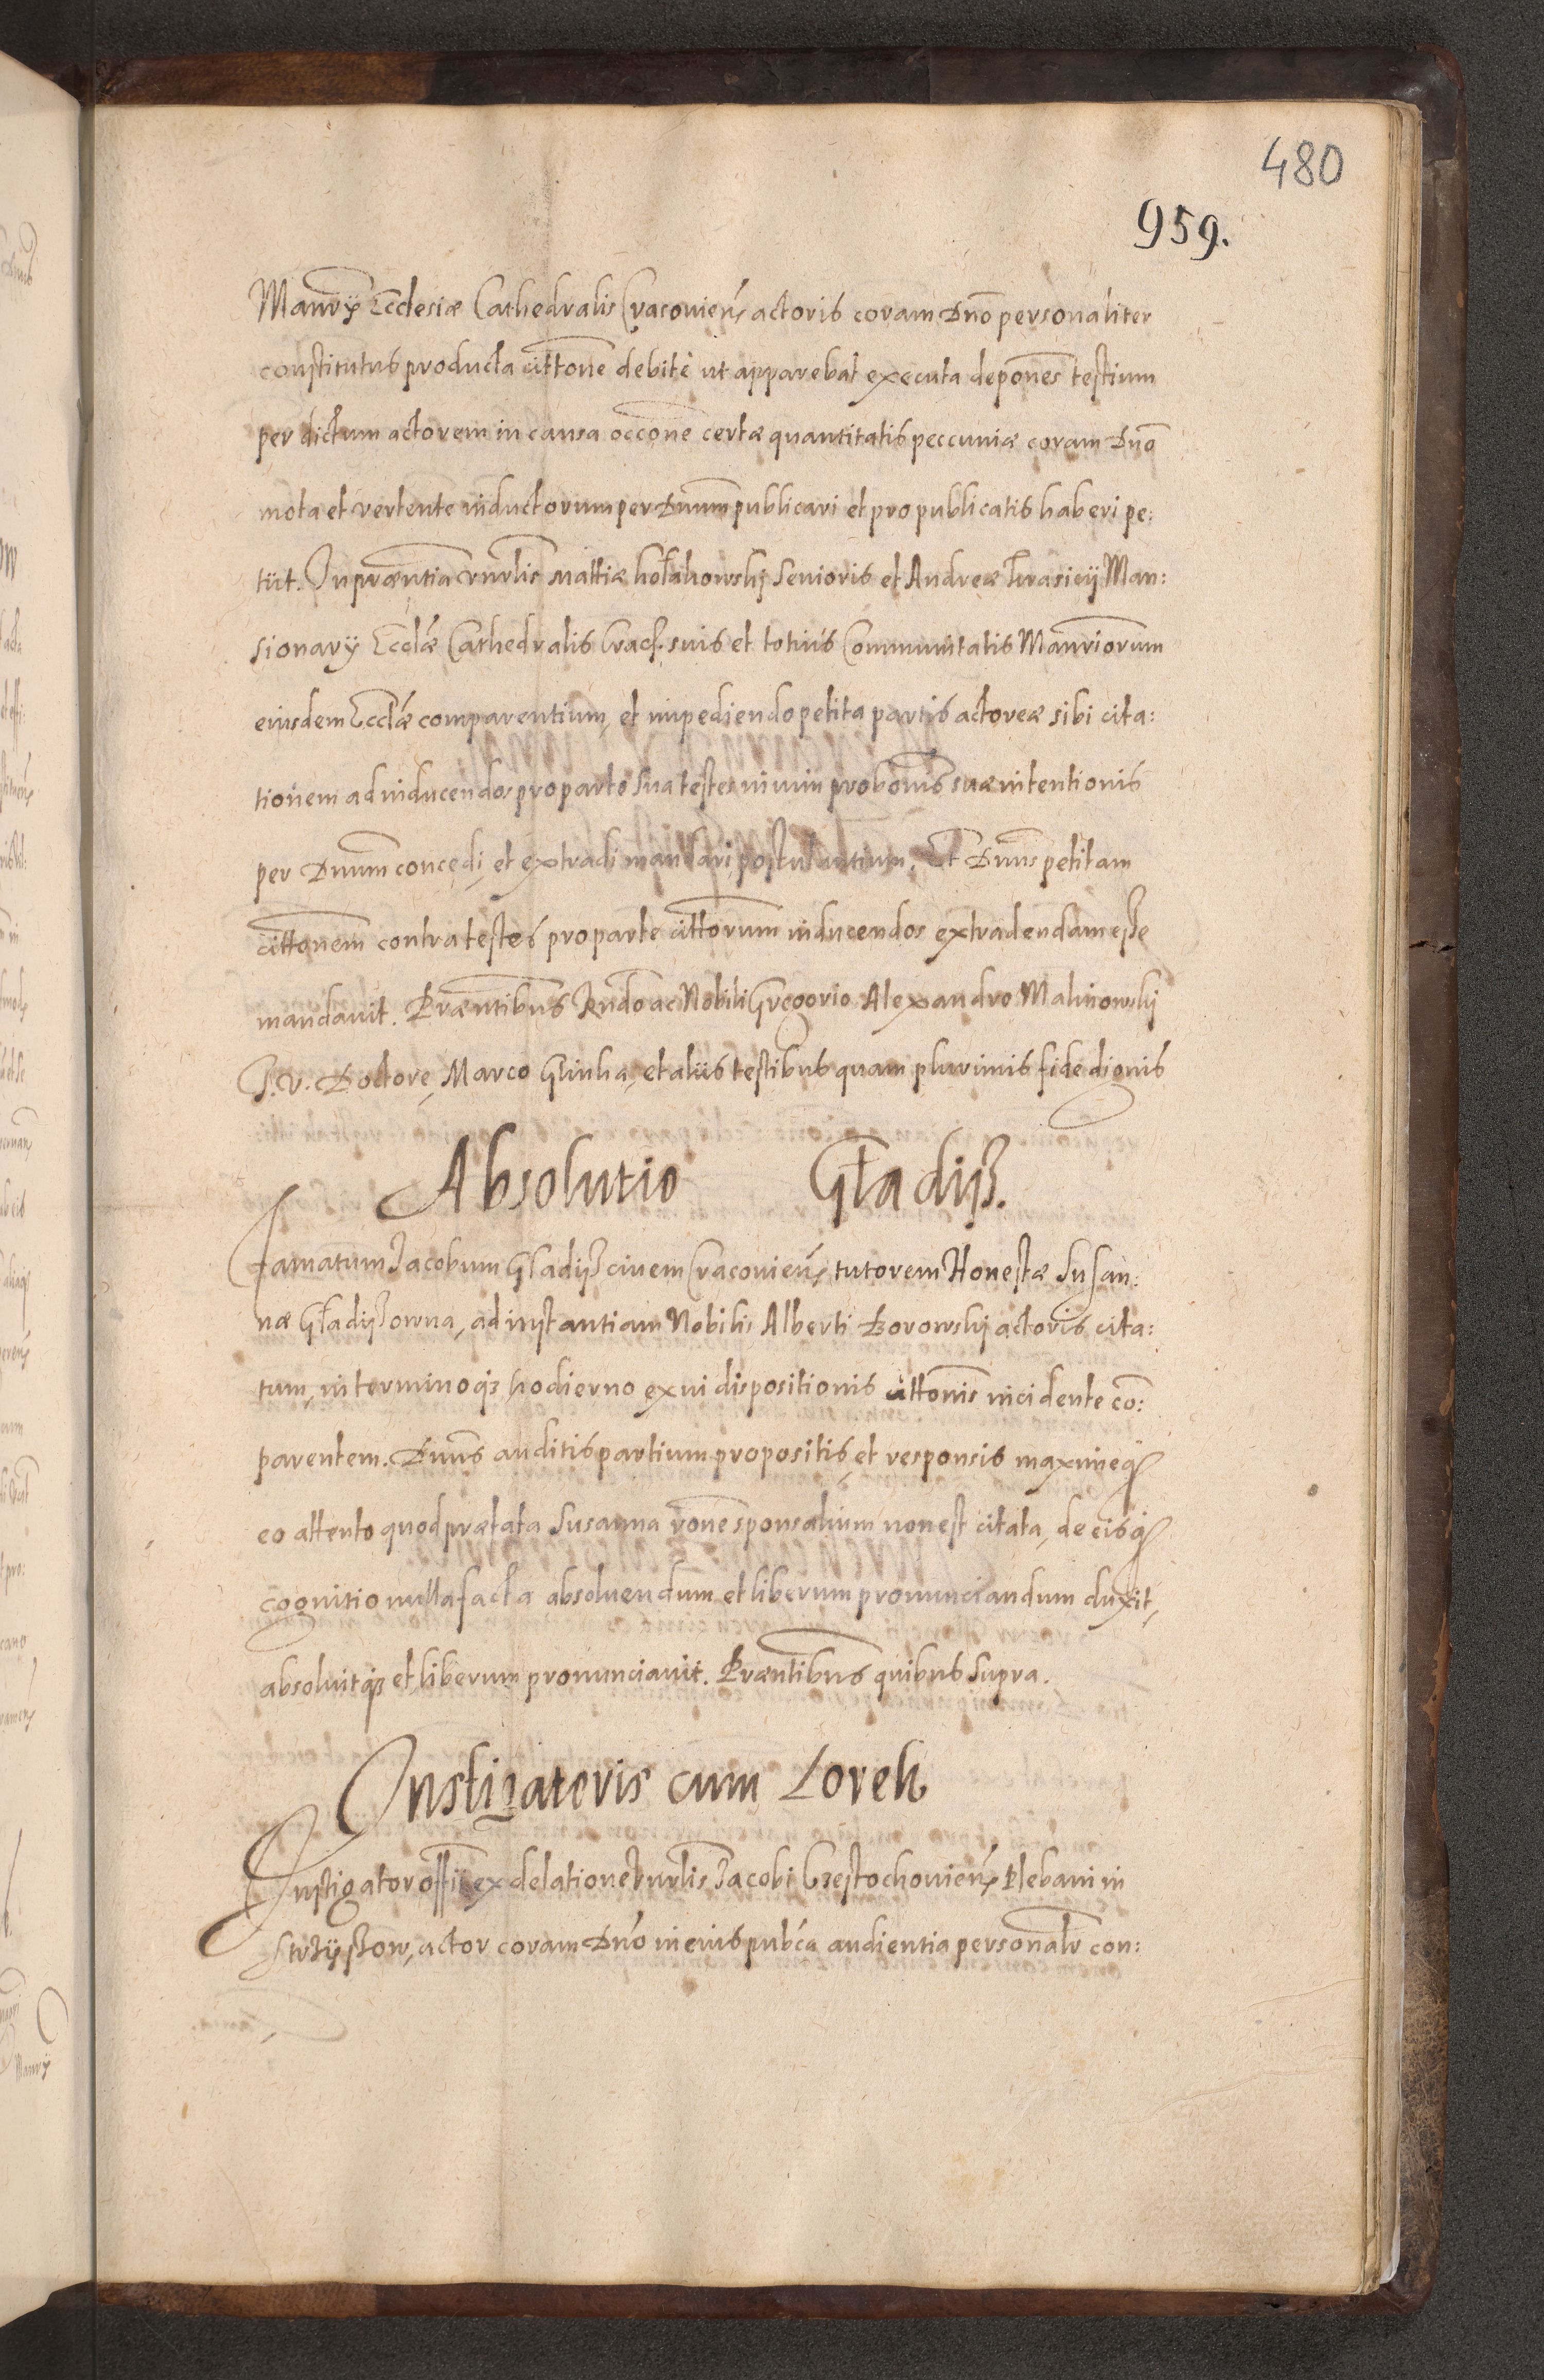 480
959.
Manrÿ Ecclesiæ Cathedralis Cracovieñ actoris coram Dno personaliter
constitutus producta cittone debitè ut apparebat executa depones testium
per dictum actorem in causa occone certæ quantitatis peccuniæ coram Dno
mota et vertente inductorum per Dnum publicari et pro publicatis haberi pe:
tiit. In præntia vnrlis Mattiæ Senioris et Andreæ Man:
sionarÿ Ecclæ Cathedralis Crac. suis et totius Communitatis Manriorum
eiusdem Ecclæ comparentium, et impediendo petita partis actoreæ sibi cita:
tionem ad inducendos pro parte sua testes in vim probonis suæ intentionis
per Dnum concedi, et extradi mandari postulantium. Et Dnus petitam
cittonem contra testes pro parte cittorum inducendos extradendam esse
mandavit. Præntibus Rndo ac Nobili Gregorio Alexandro Malinowskj
J. V. Doctore, Marco Glinka, et aliis testibus quam plurimis fide dignis
Absolutio Gładijß.
Famatum Jacobum Gładijß civem Cracovieñ tutorem Honestæ Susan:
næ Gładijßowna, ad instantiam Nobilis Alberti Borowskj actoris cita:
tum, in terminoq; hodierno ex vi dispositionis cittonis incidente co:
parentem. Dnus auditis partium propositis et responsis maximeq;
eo attento quod prætata Susanna rone sponsalium non est citata, de eisq;
cognitio nulla facta absolvendum et liberum pronunciandum duxit,
absolvitq; et liberum pronunciavit. Præntibus quibus supra.
Instigatoris cum Lorek
Instigator offii ex delatione vnrlis Jacobi Czestochovieñ Plebani in
Strzÿszow, actor coram Dno in eius pubca audientia personalr con: